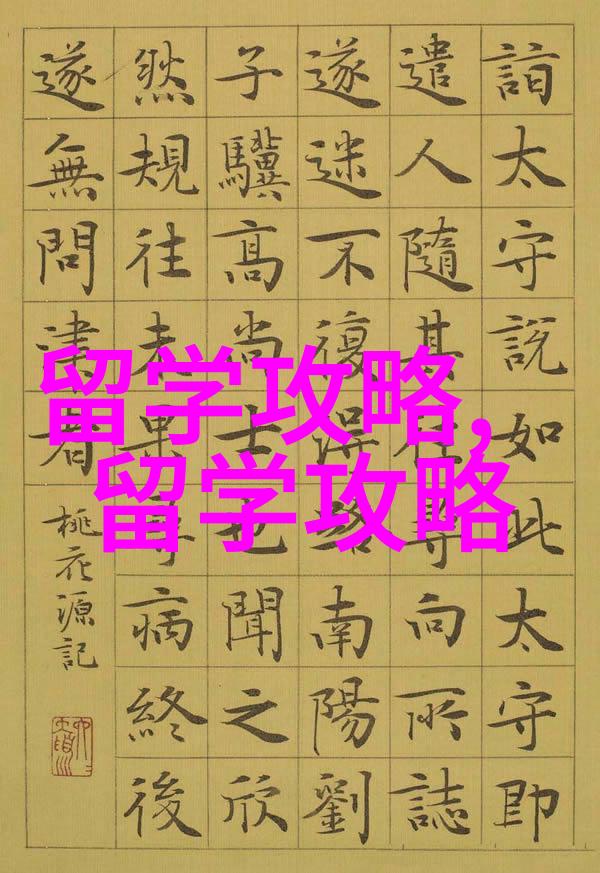 詣太守說如此太守即
遣人隨其往尋向所誌
遂迷不復得路南陽劉
子驥髙尚士也聞之欣
然規往未果尋病終後
遂無問津者
桃花源記
留学攻略,
留学攻略